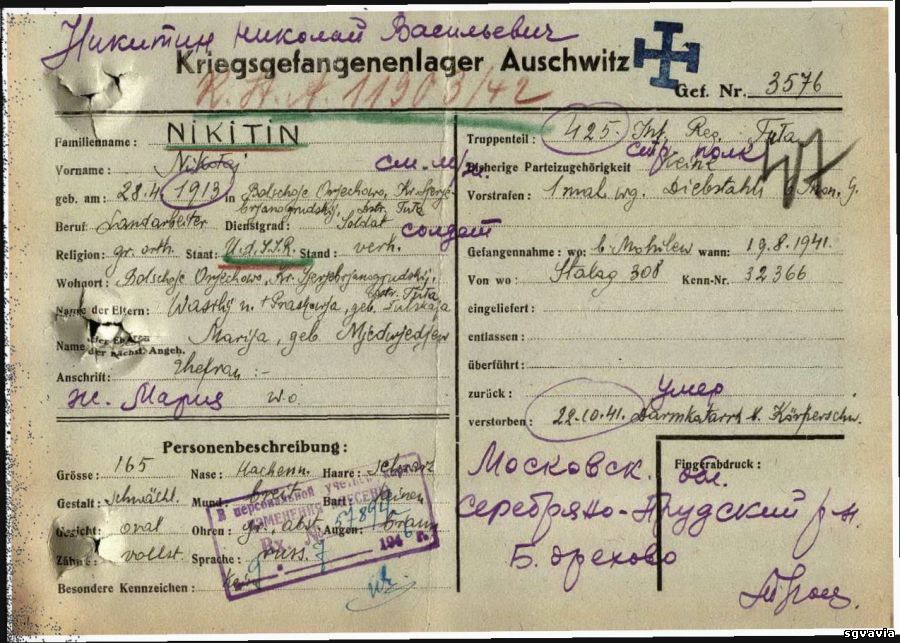 Никитин Николай Васильевич
Kriegsgefangenenlager Auschwitz
R.H.A. 11903/42
Gef. Nr. 3576
Familienname : NIKITIN
Vorname : Nikolaj
geb. am : 28.4 1913 in Bolschoje Orjechowo, Kr. Serje-
brjanogrudskij, Distr. Tula
Beruf: Landarbeiter Dienstgrad: Soldat солдат
Religion: gr. orth. Staat: U.d.S.S.R. Stand: verh.
Wohnort: Bolschoje Orjechowo, Kr. Serjebrjanogrudskij,
Distr. Tula
Name der Eltern: Wasilij u. + Praskowja, geb. Tulskaja
Name der Ehefrau
der nächst. Angeh. Marija, geb. Mjedwjedjew
Anschrift: Ehefrau :-
ж. Мария w.o.
Personenbeschreibung:
Grösse: 165 Nase: Haare: schwarz
Gestalt: schwächl. Mund: breit Bart: keinen
Gesicht: oval Ohren: gr. abst. Augen: braun
Zähne: vollst. Sprache: russ.
Besondere Kennzeichen: keine
В персональной учетной карте
изменения внесены
Вх. № 57894
1946
Truppenteil: 425. Inf. Reg. Tula
стр. полк
Bisherige Parteizugehörigkeit Keine
47
Vorstrafen: 1 mal wg. Diebstahls 6 Mon. G.
Gefangennahme: wo: b. Mohilew wann: 19.8.1941.
Von wo: Stalag 308 Kenn-Nr. 32366
eingeliefert:
entlassen:
überführt:
zurück: умер
verstorben: 22.10.41. Darmkatarrh b. Körperschw.
Fingerabdruck:
Московск. обл.
Серебряно-Прудский р-н
Б. Орехово
sgvavia